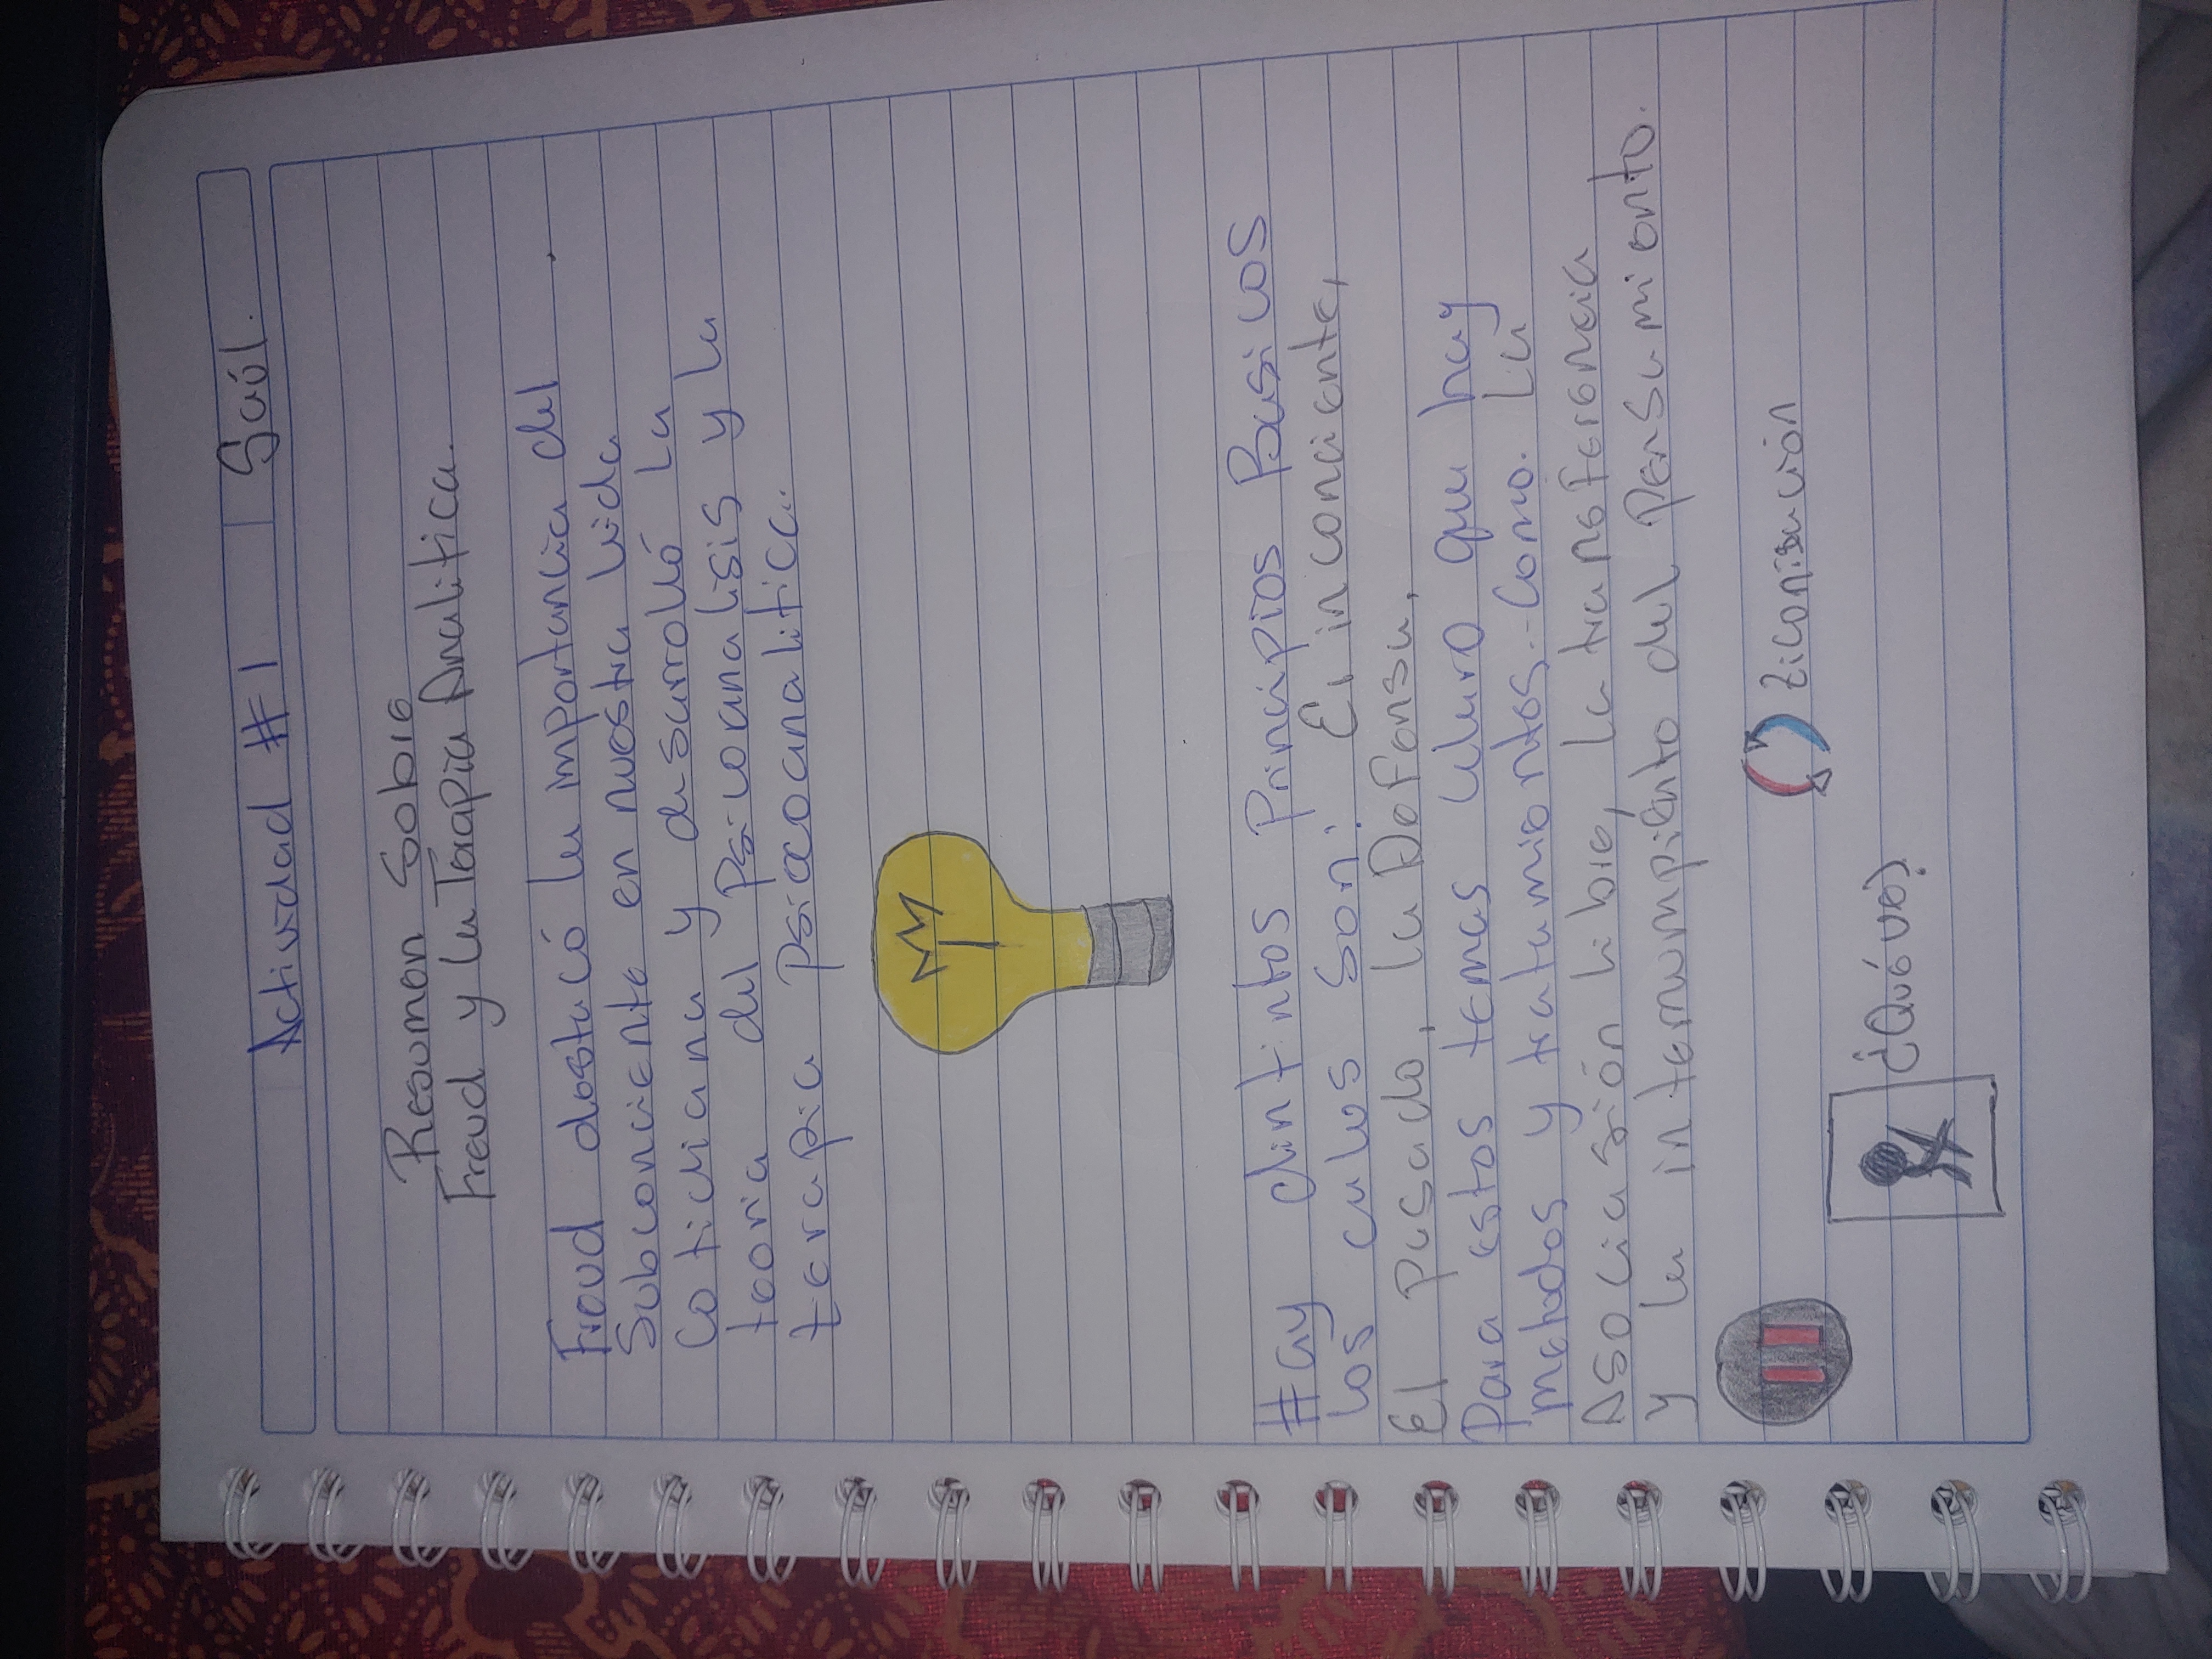 Actividad #1 Saúl.
Resumen Sobre
Freud y la Terapia Analitica.
Freud destacó la importancia del
Subconciente en nuestra vida
Cotidiana y desarrolló La
teoria del Psicoanalisis y la
terapia psicoanalitica.
Hay distintos Principios Basicos
Los cuales son: El inconciente,
El pasado, La Defensa,
Para estos temas claro que hay
metodos y tratamientos.. Como. La
Asociasión libre, La transferencia
y la interrumpiento del Pensamiento.
¿Qué ves?